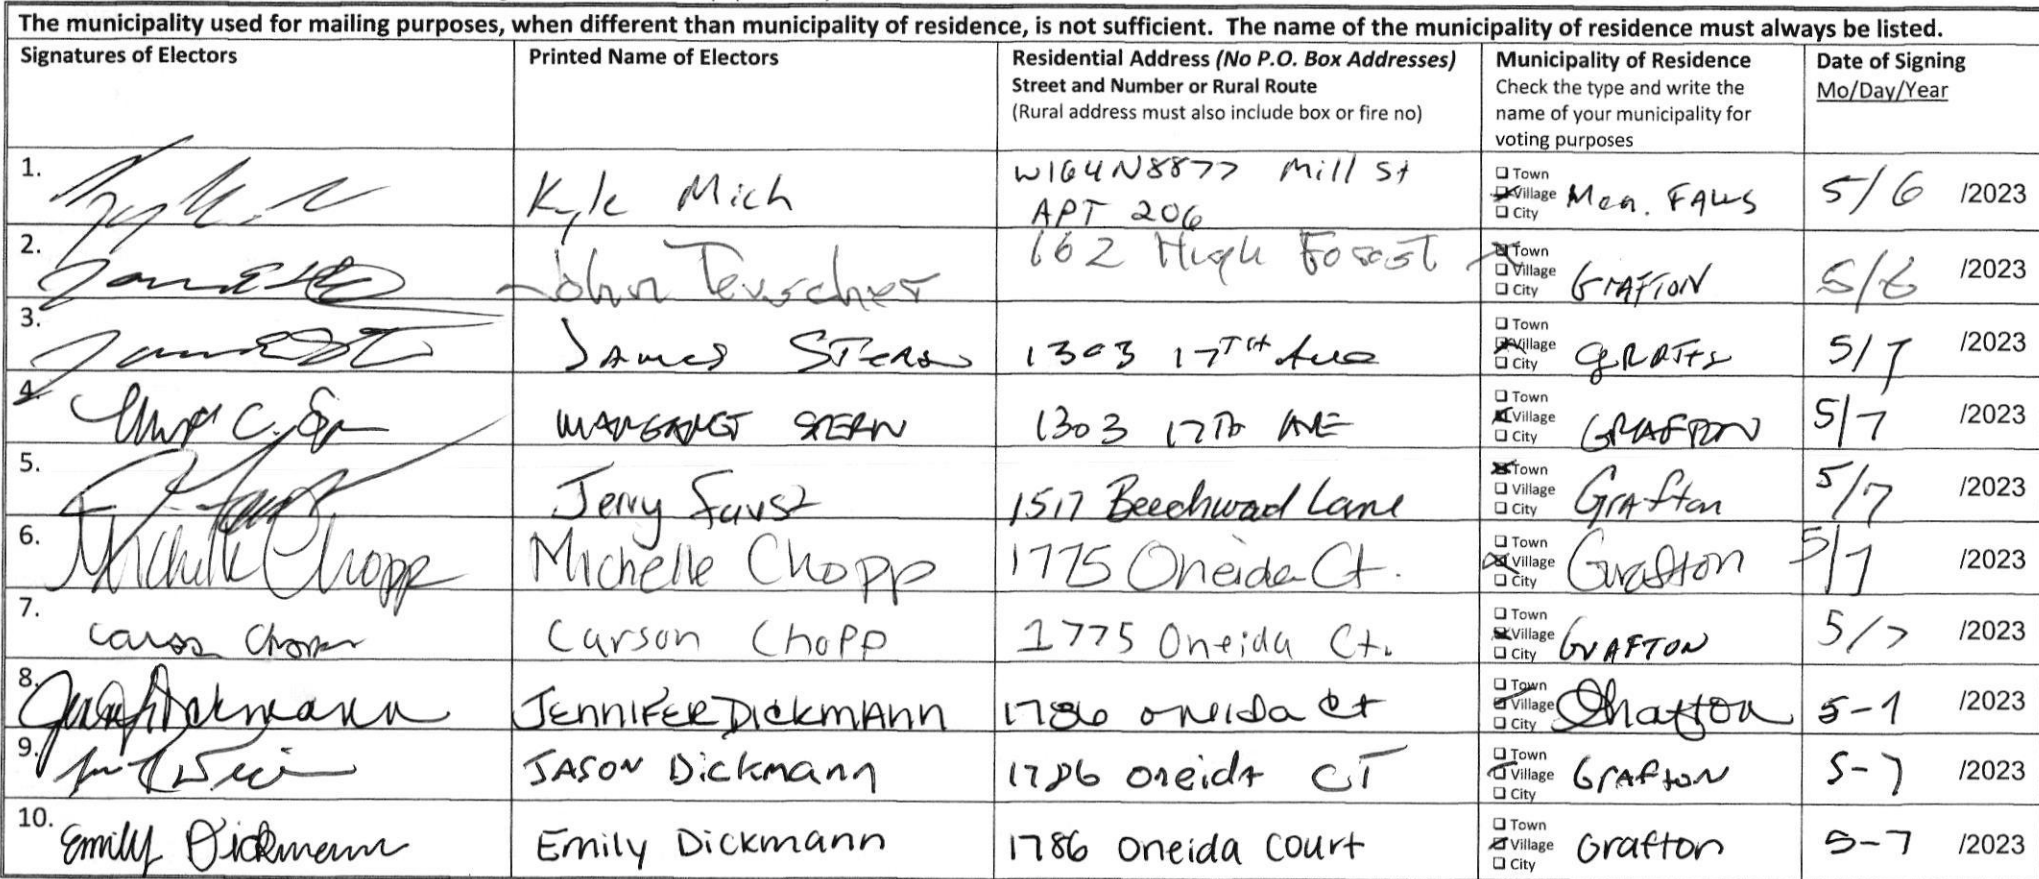 The municipality used for mailing purposes, when different than municipality of residence, is not sufficient. The name of the municipality of residence must always be listed.
Signatures of Electors
Printed Name of Electors
Residential Address (No P.O. Box Addresses)
Street and Number or Rural Route
(Rural address must also include box or fire no)
Municipality of Residence
Check the type and write the
name of your municipality for
voting purposes
Date of Signing
Mo/Day/Year
1. Kyle Mich W164N8877 Mill St
APT 206
Town
Village Men. FALLS 5/6 /2023
City
2. John Teuscher 162 High Forest
Town
Village GRAFTON 5/6 /2023
City
3. JAMES STERN 1303 17TH Ave
Town
Village 5/7 /2023
City
4. MARGARET STERN 1303 17TH AVE
Town
Village GRAFTON 5/7 /2023
City
5. Jerry Faust 1517 Beechwood Lane
Town
Village Grafton 5/7 /2023
City
6. Michelle Chopp Michelle Chopp 1775 Oneida Ct.
Town
Village Grafton 5/7 /2023
City
7. Carson Chopp 1775 Oneida Ct.
Town
Village GRAFTON 5/7 /2023
City
8. JENNIFER DICKMANN 1786 oneida ct
Town
Village Grafton 5-7 /2023
City
9. JASON Dickmann 1786 oneida CT
Town
Village GRAFTON 5-7 /2023
City
10. Emily Dickmann Emily Dickmann 1786 Oneida Court
Town
Village Grafton 5-7 /2023
City